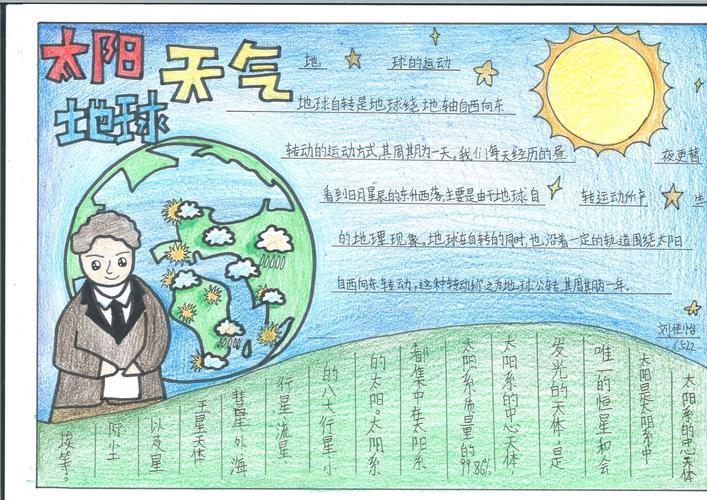 太阳 天气
地球
地 球的运动
地球自转是地球绕地轴自西向东
转动的运动方式,其周期为一天。我们每天经历的昼 夜更替
看到日月星辰的东升西落,主要是由于地球自 转运动所产 生
的地理现象。地球在自转的同时,也沿着一定的轨道围绕太阳
自西向东转动,这种转动称之为地球公转,其周期为一年。
刘佳怡
太阳系的中心天体
太阳是太阳系中
唯一的恒星和会
发光的天体,是
太阳系的中心天体,
太阳系质量的99.86%
都集中在太阳系
的太阳。太阳系
的八大行星小
行星流星
彗星外海
王星天体
以及星
际尘
埃等。